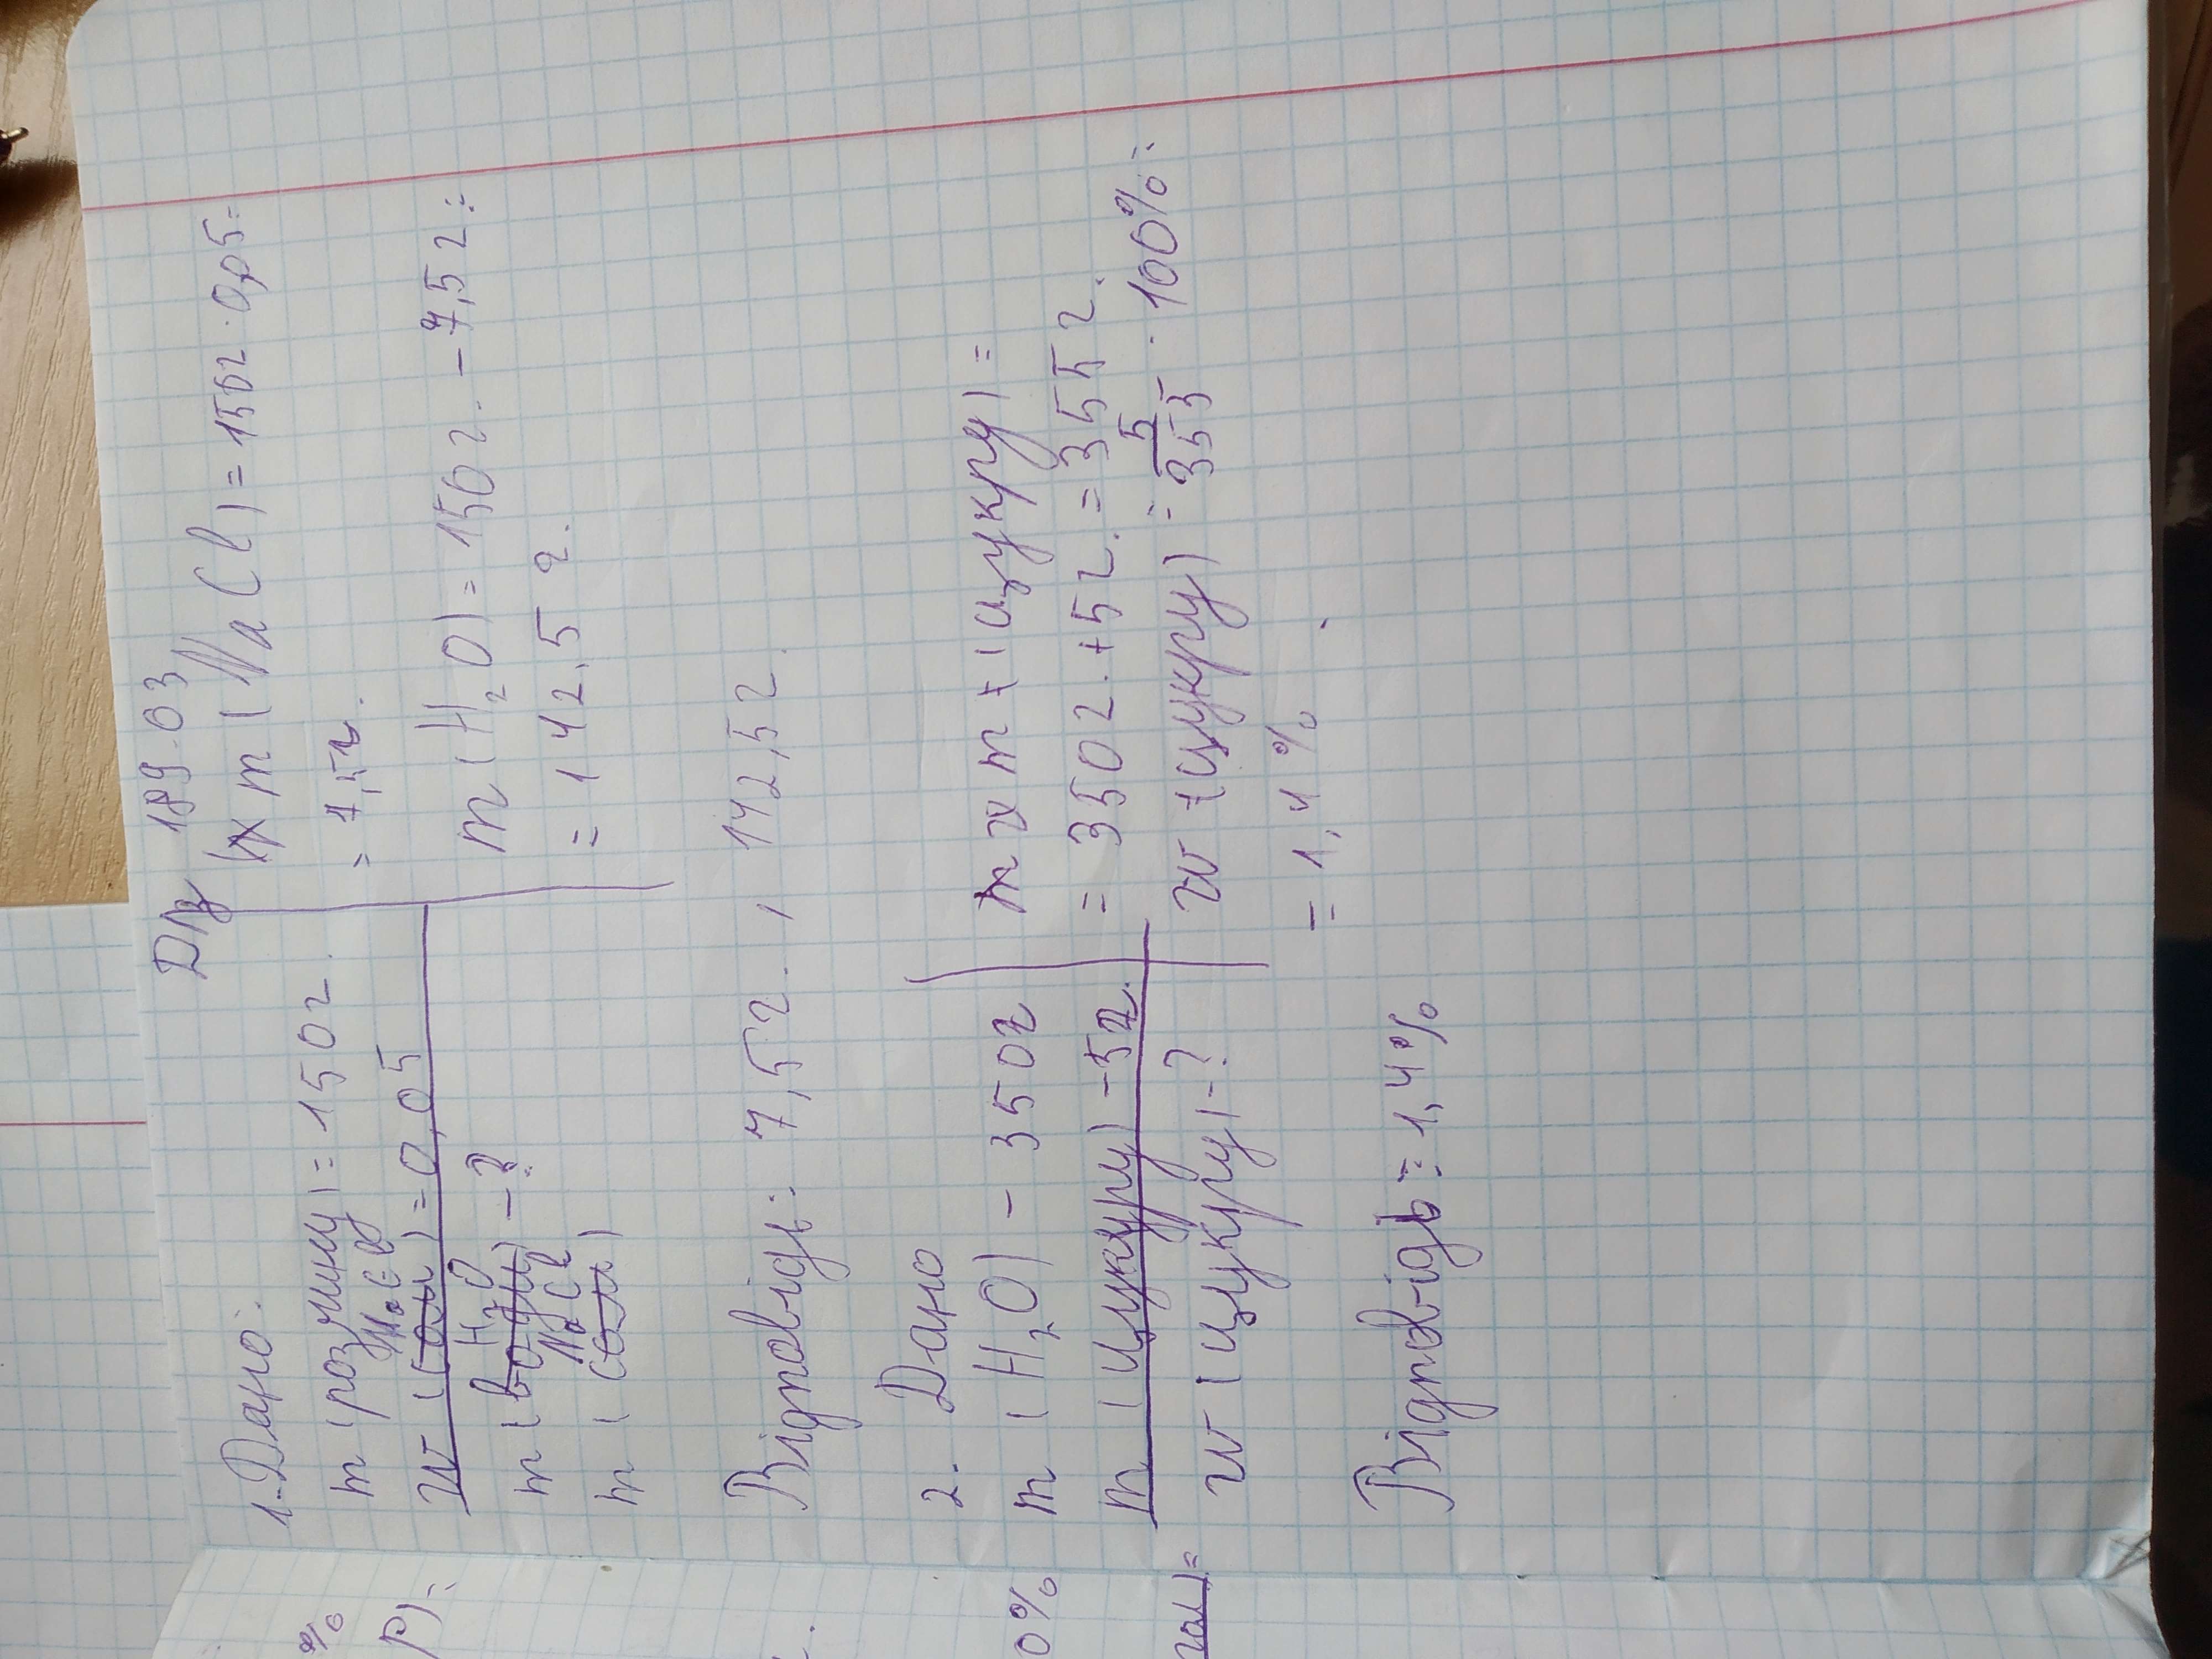 Д/з 189.03
1. Дано:
m (розчину) = 150г.
W (NaCl) = 0,05
m (H₂O) - ?
m (NaCl)
m (NaCl) = 150г · 0,05 =
= 7,5г.
m (H₂O) = 150г. - 7,5г =
= 142,5 г.
Відповідь: 7,5г. , 142,5г.
2. Дано
m (H₂O) - 350г
m (цукру) - 5г.
w (цукру) - ?
(цукру) =
= 350г. + 5г. = 355г.
w (цукру) = 5/355 · 100% =
= 1,4%
Відповідь: 1,4%
%
р) =
0%